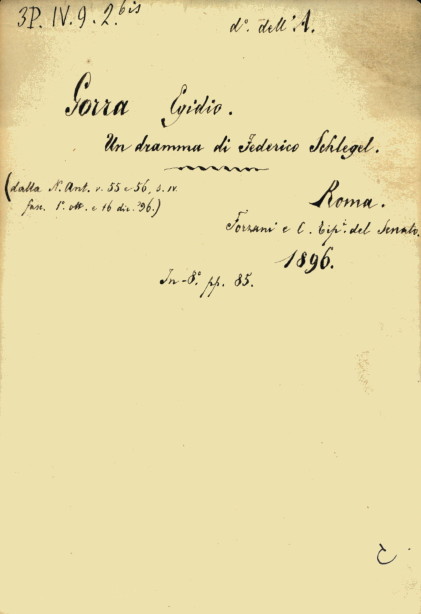 3P. IV. 9. 2.bis
d°. dell'A.
Gorra Egidio.
Un dramma di Federico Schlegel.
(dalla N. Ant. v. 55 e 56, s. IV.
fasc. 1° ott. e 16 dic. '96.)
Roma.
Forzani e C. Tipi. del Senato.
1896.
In-8° pp. 85.